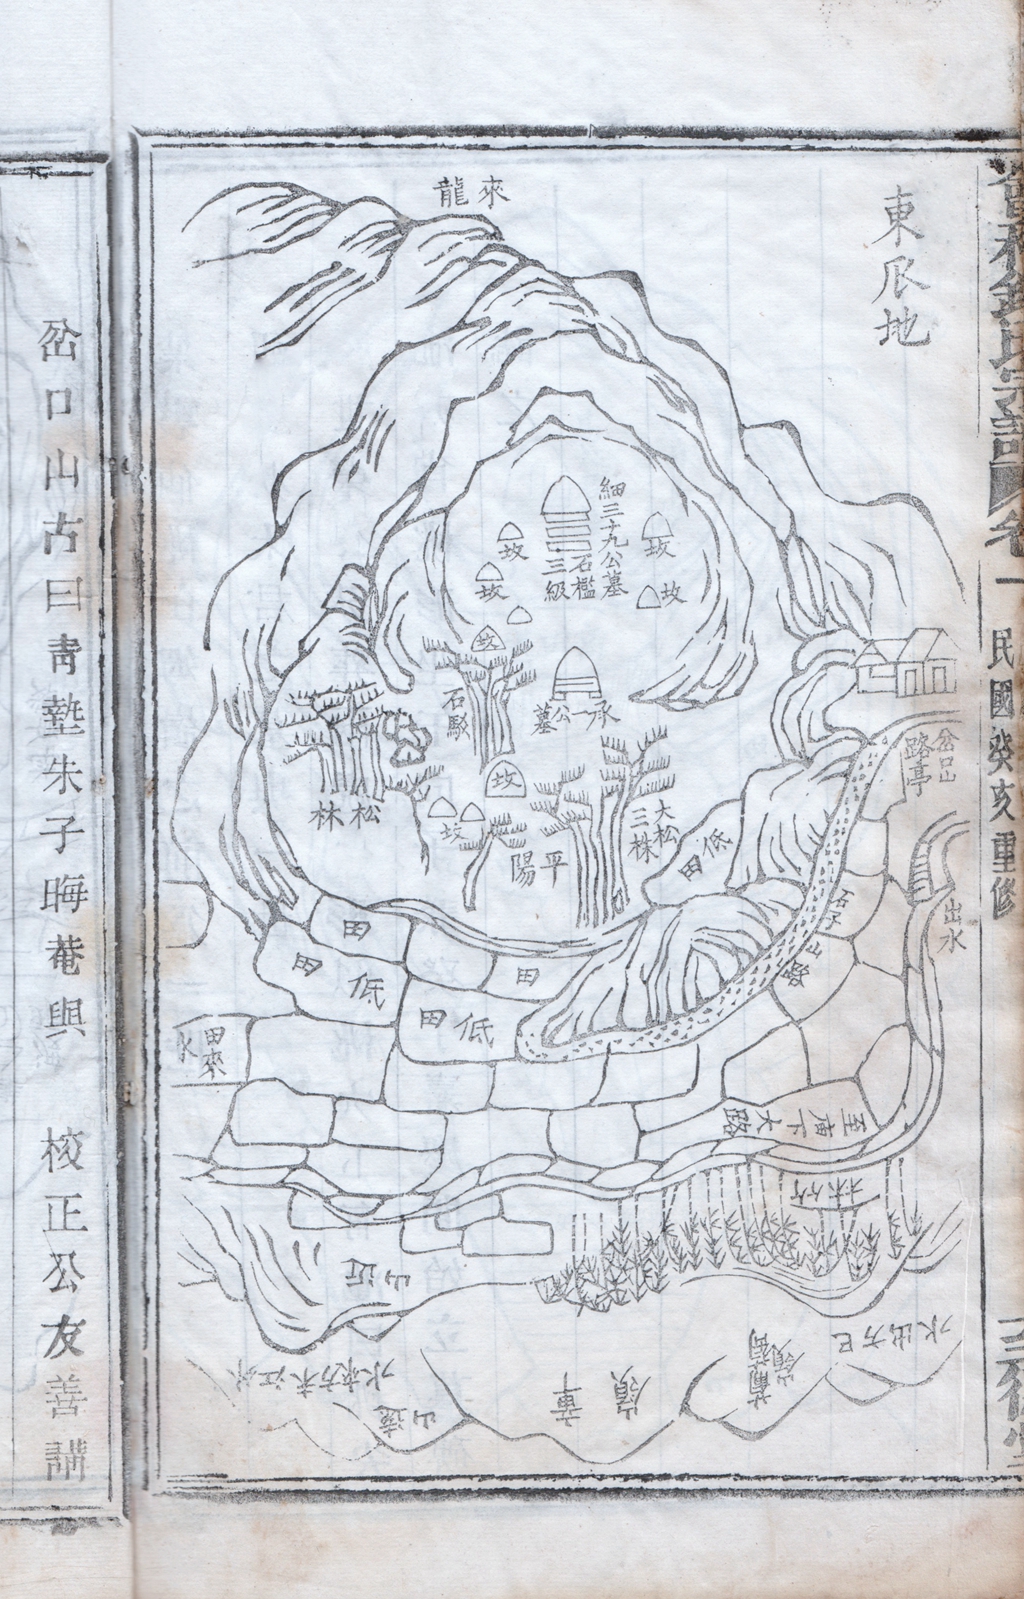 東瓜地
來龍
細三十九公墓
石檻
三級
坟
坟
坟
坟
坟
承一公墓
石駁
坟
坟
松林
大松
三株
平陽
低田
岔口山
路亭
出水
田
田
低
田
田
低
田來
水
至庙下大路
竹林
近山
遠山
嶺
巳方出水
氏宗譜
卷一
民國癸亥重修
岔口山古曰青塾朱子晦菴與
校正公友善講